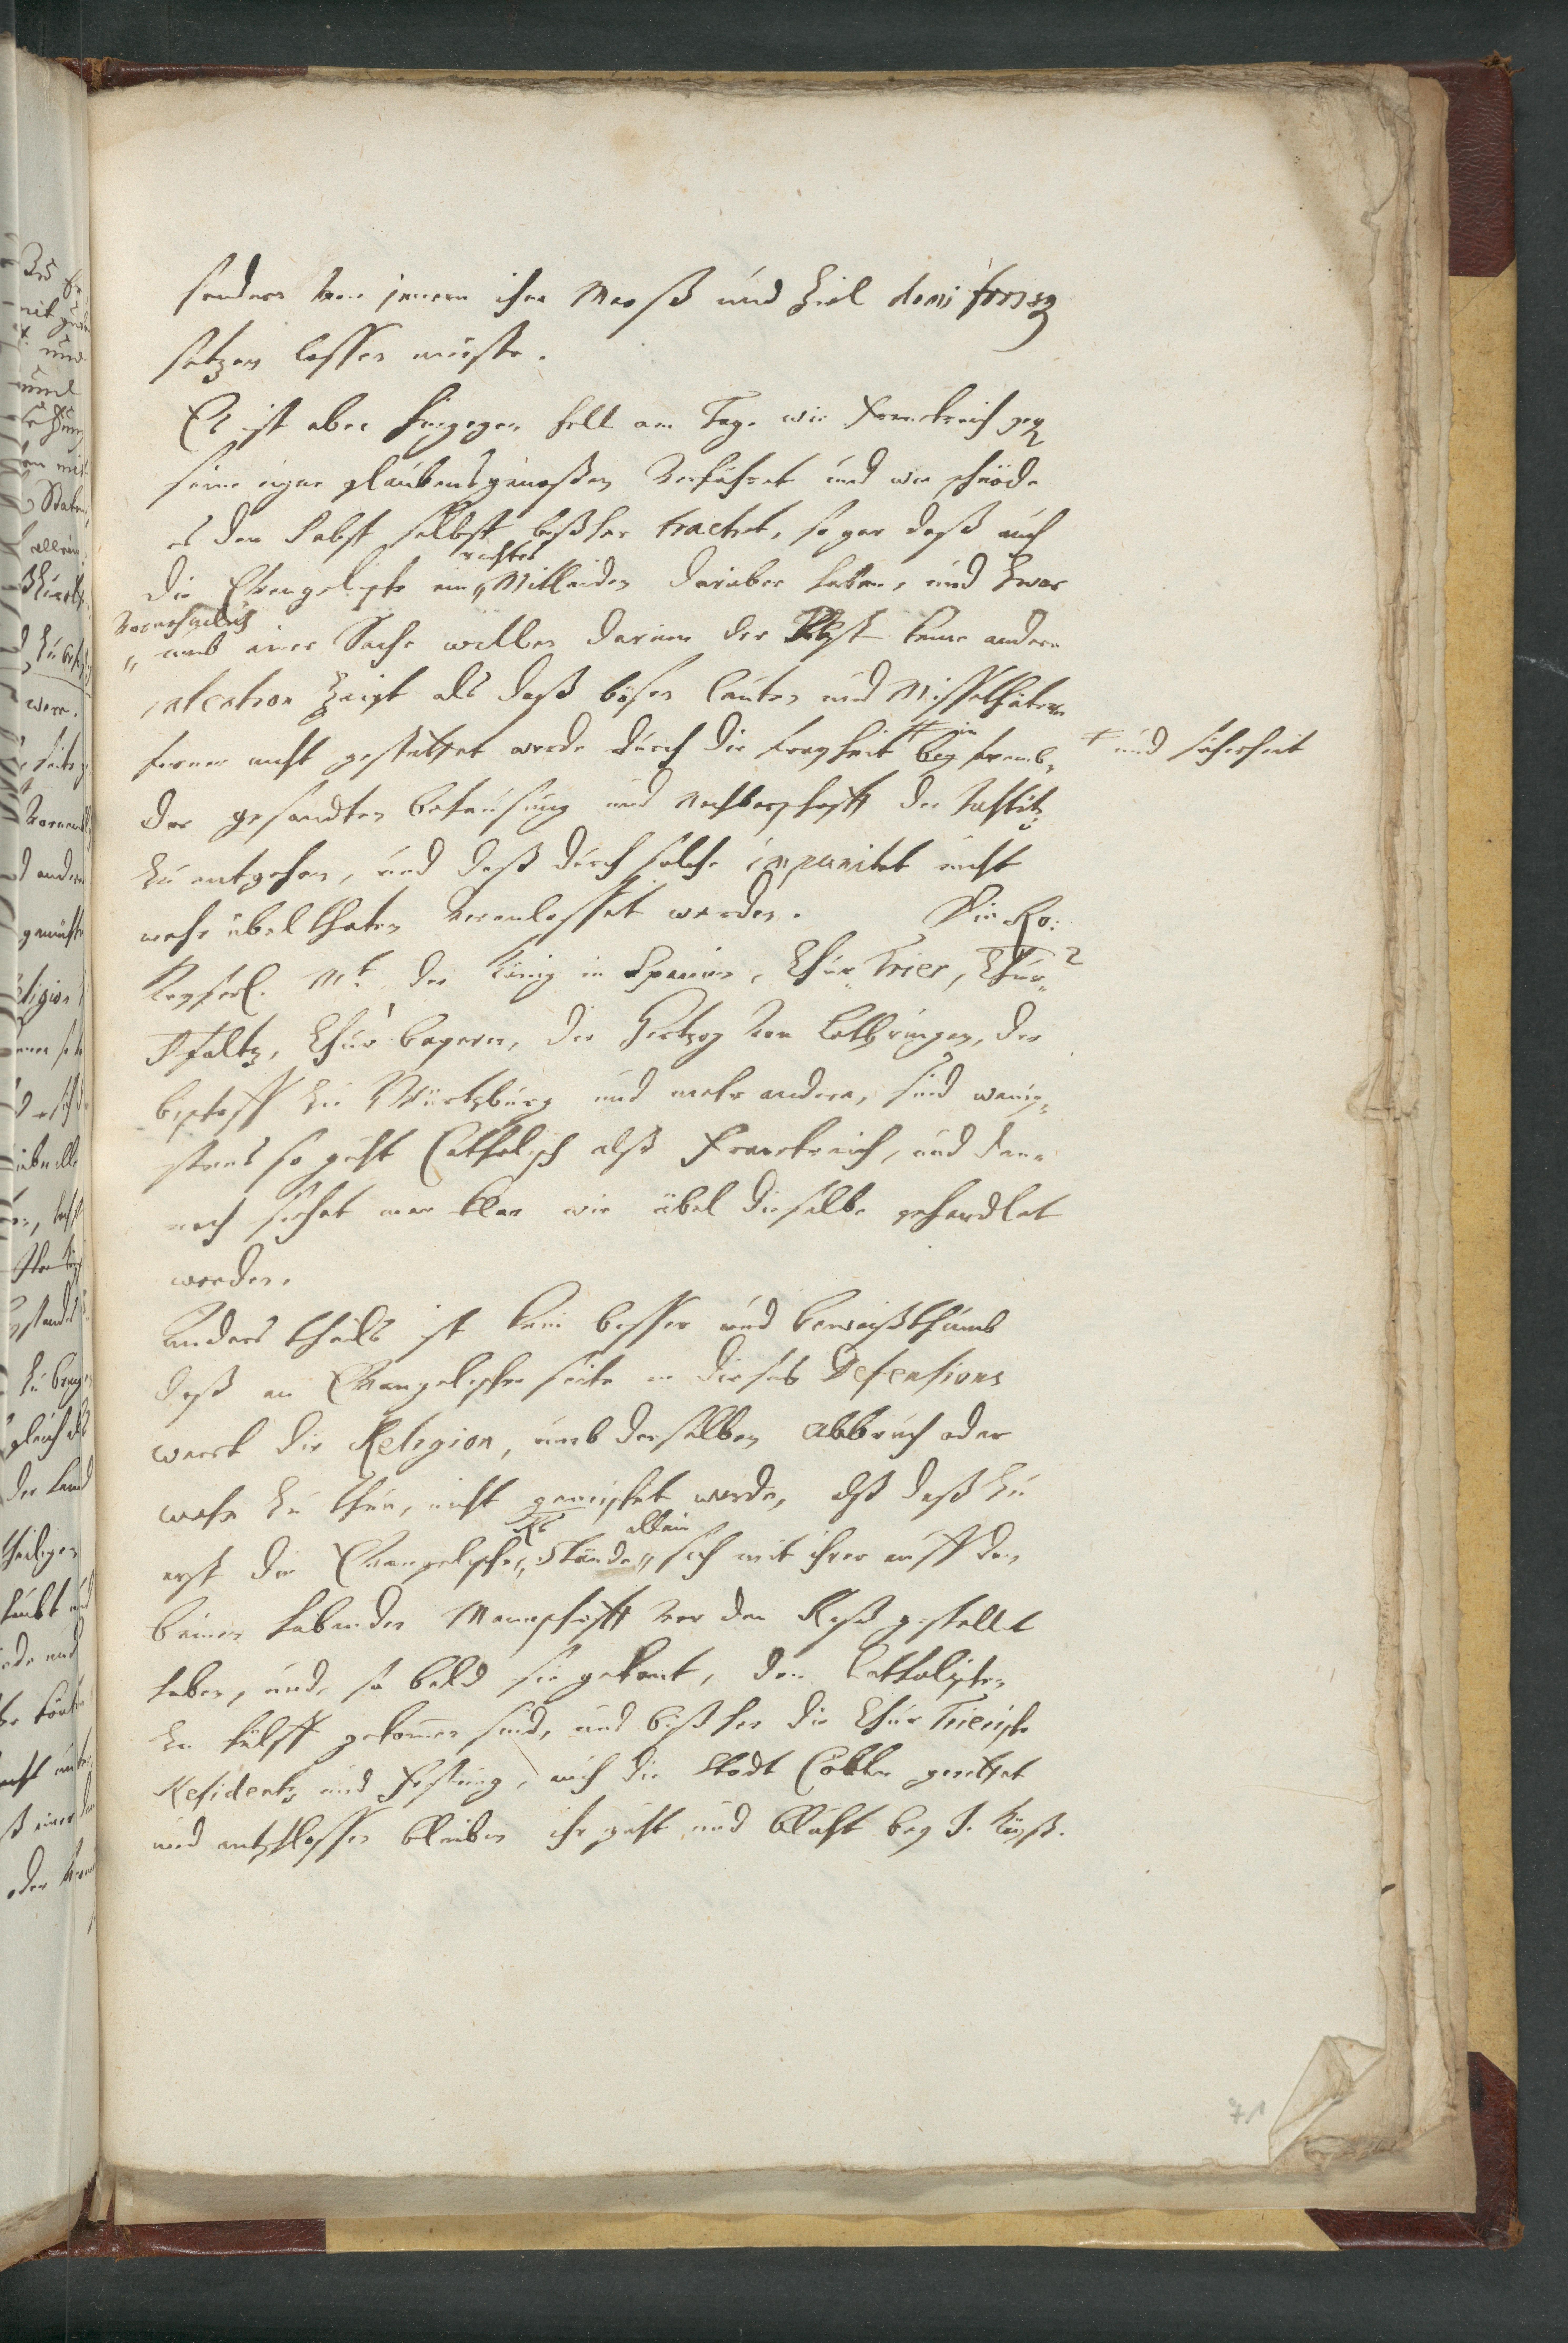 sondern von jenem ihre Maaß und Ziel domi forisq
setzen lassen müste.
Es ist aber hingegen hell am Tage wie Franckreich geg
seine eigne glaubensgenoßen verfähret und wie schnöde
es den Pabst selbst bißher tractet, so gar daß auch
die Evangelische ein rechtes Mitleiden darüber haben, und zwar
vornehmlich umb einer Sache willen darinn der Pabst keine andere
intention zeigt als daß bösen leuten und Missethätern
ferner nicht gestattet werde durch die freyheit in fremb-
+ und sicherheit
der gesandten behausung und nachbarschafft der Justitz
zu entgehen, und daß durch solche impunitet nicht
mehr übelthaten veranlasset werden. Die Ro:
Keyserl. Mt. der König in Spanien, Chur Trier, Chur-
Pfaltz, Chur bayern, der Hertzog von Lothringen, der
bischoff zu Würtzburg und mehr andere, sind wenig-
stens so guht Catholisch alß Franckreich, und den-
noch siehet man klar wie übel dieselbe gehandlet
worden.
Anders theils ist kein besser und beweißthumb
daß an Evangelischer seite in dieses Defensions
werck die Religion, umb derselben Abbruch oder
wehe zu thun, nicht gemischet werde, alß daß zu
erst die Evangelische Stände allein sich mit ihrer auff den
beinen habenden Mannschafft vor den Riß gestellet
haben, und so bald sie gekont, den Catholischen
zu hülff gekommen sind, und bißher die Chur Trierische
Residentz und Festung, auch die Stadt Cöllen gerettet
und entschlossen bleiben ihr guht und bluht bey J. Kayß.
71